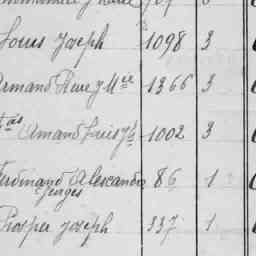 Louis Joseph 1098 3
Armand Rene J Mie 1366 3
Amand Luis Jh 1002 3
Ferdinand Alexandre 86 1
Georges
Prosper Joseph 337 1